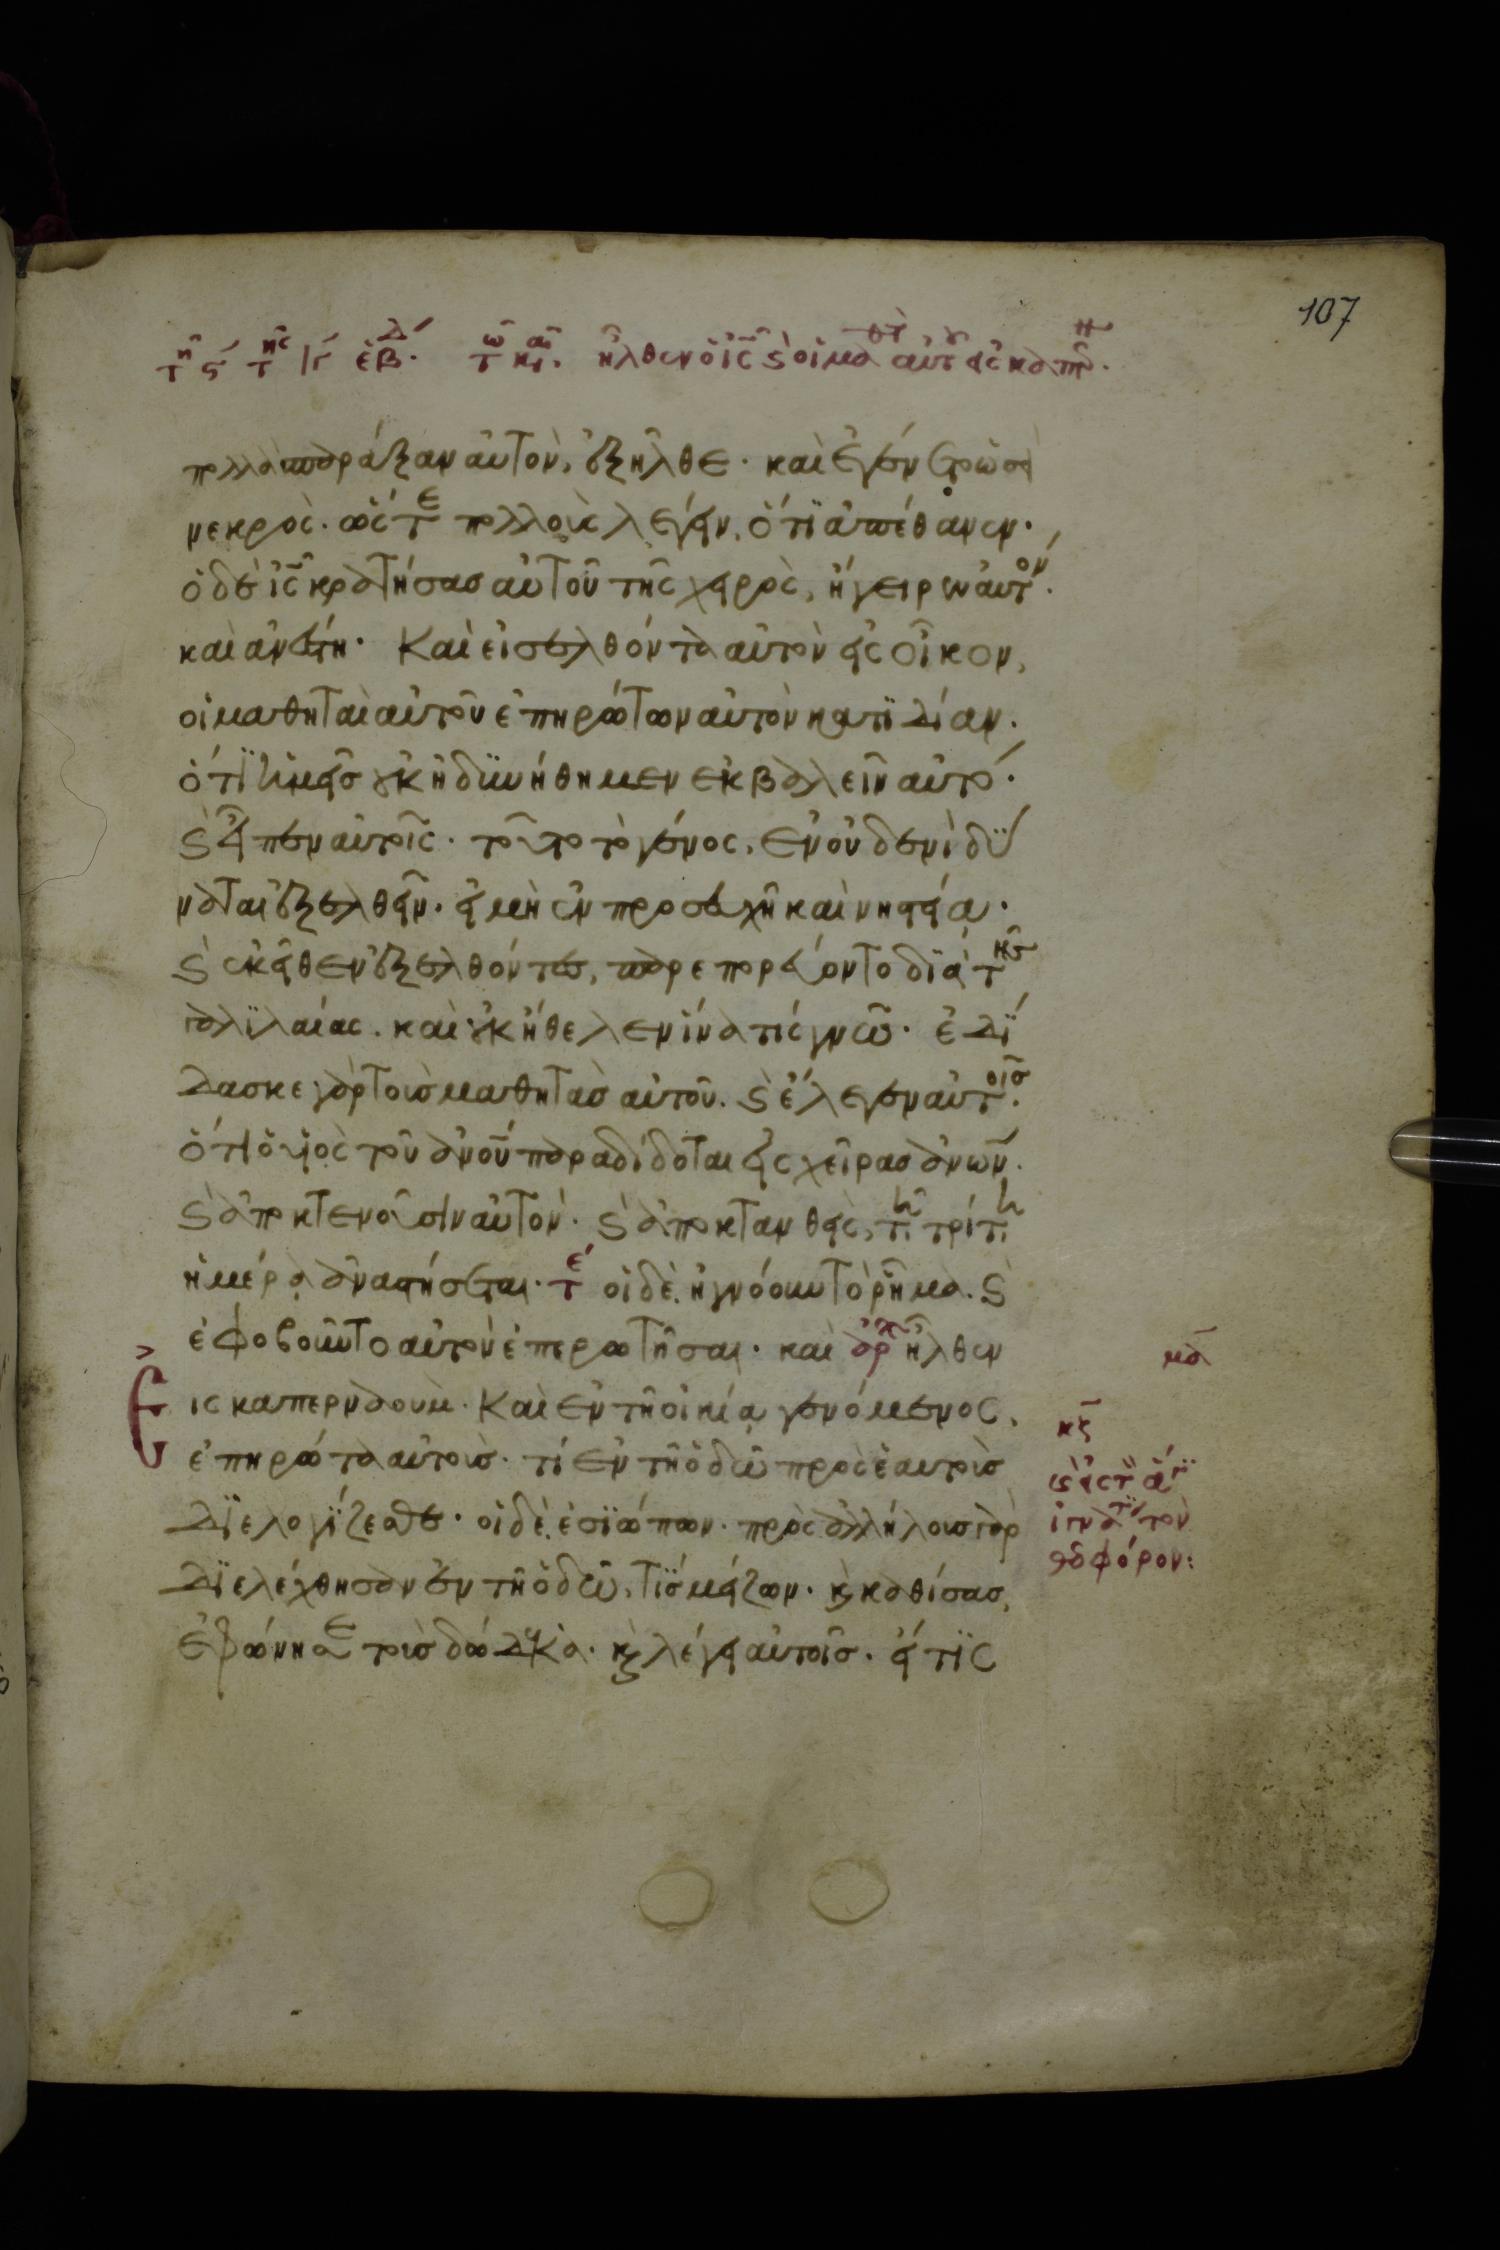 107
τῆ ς́ τῆς ιγ́ ἑβδ́. τῶ και. ἦλθεν ὁ ις̄ κ(αὶ) οἱ μαθὴ αὐτοῦ εἰς καπερ.
πολλα σπαράξαν αὐτὸν, ἐξῆλθε. καὶ ἐγένετο ὡσεὶ
νεκρὸς. ὥστε πολλοὺς λέγειν, ὅτϊ ἀπέθανεν.
ὁ δὲ ις̄ κρατήσας αὐτοῦ τῆς χειρὸς, ἤγειρεν αὐτόν.
καὶ ἀνέστη. Καὶ εἰσελθόντα αὐτὸν εἰς οἶκον,
οἱ μαθηταὶ αὐτοῦ ἐπηρώτων αὐτὸν κατϊδίαν.
ὅτϊ ἡμεῖς οὐκ ἠδϋνήθημεν ἐκβαλεῖν αὐτό.
κ(αὶ) εἶπεν αὐτοῖς. τοῦτο τὸ γένος, ἐν οὐδενὶ δϋ
ναται ἐξελθεῖν. εἰ μὴ ἐν προσευχῆ καὶ νηστεία.
κ(αὶ) ἐκεῖθεν ἐξελθόντες, παρεπορεύοντο δϊὰ τῆς
γαλϊλαίας. καὶ οὐκ ἤθελεν ἵνα τίς γνῶ. ἐδΐ
δασκε γὰρ τοὺς μαθητὰς αὐτοῦ. κ(αὶ) ἔλεγεν αὐτοῖς.
ὅτι ὁ υἱὸς τοῦ ἀνοῦ παραδίδοται εἰς χεῖρας ἀνων.
κ(αὶ) ἀποκτενοῦσιν αὐτὸν. κ(αὶ) ἀποκτανθεὶς, τῆ τρίτη
ἡμέρα ἀναστήσεται. τέ οἱ δὲ ἠγνόουν τὸ ρῆμα. κ(αὶ)
ἐφοβοῦντο αὐτὸν ἐπερωτῆσαι. καὶ ἀρχ ἦλθεν
μδ̄
Εις καπερναουμ. Καὶ ἐν τῆ οἰκία γενόμενος,
κζ̄
ἐπηρώτα αὐτοὺς. τί ἐν τῆ ὁδῶ πρὸς ἑαυτοὺς
κ(αὶ) εἰς τοῦ ἁγϊ
δϊελογΐζεσθε. οἱ δὲ ἐσϊώπων. πρὸς ἀλλήλους γὰρ
ἰγνάτϊ τον
δϊελέχθησαν ἐν τῆ ὁδῶ, τΐς μείζων. κ(αὶ) καθίσας,
θεοφόρον:
ἐφώνησε τοὺς δώδεκα. κ(αὶ) λέγει αὐτοῖς. εἴ τϊς